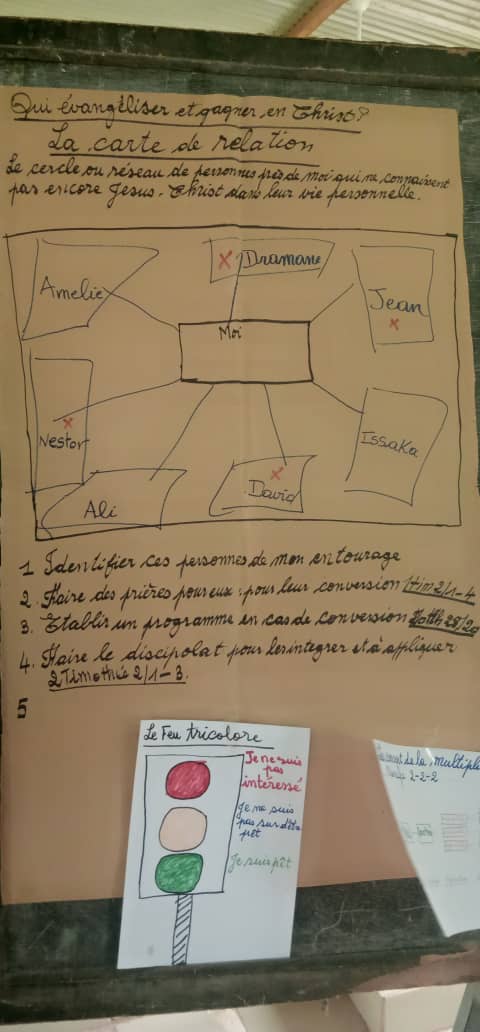 Qui évangéliser et gagner en Christ?
La carte de relation
Le cercle ou réseau de personnes près de moi qui ne connaissent
pas encore Jesus-Christ dans leur vie personnelle.
Amelie
x Dramane
Jean
x
Moi
x
Nestor
Issaka
Ali
x
David
1 Identifier ces personnes de mon entourage
2. Faire des prières pour eux : pour leur conversion 1tim 2/1-4
3. Etablir un programme en cas de conversion Matth 28/20
4. Faire le discipolat pour les integrer et à appliquer
2 Timothée 2/1-3.
5
Le Feu tricolore
Je ne suis
pas
intéressé
Je ne suis
pas sur d'être
prêt
Je suis prêt
de la multipli
2-2-2